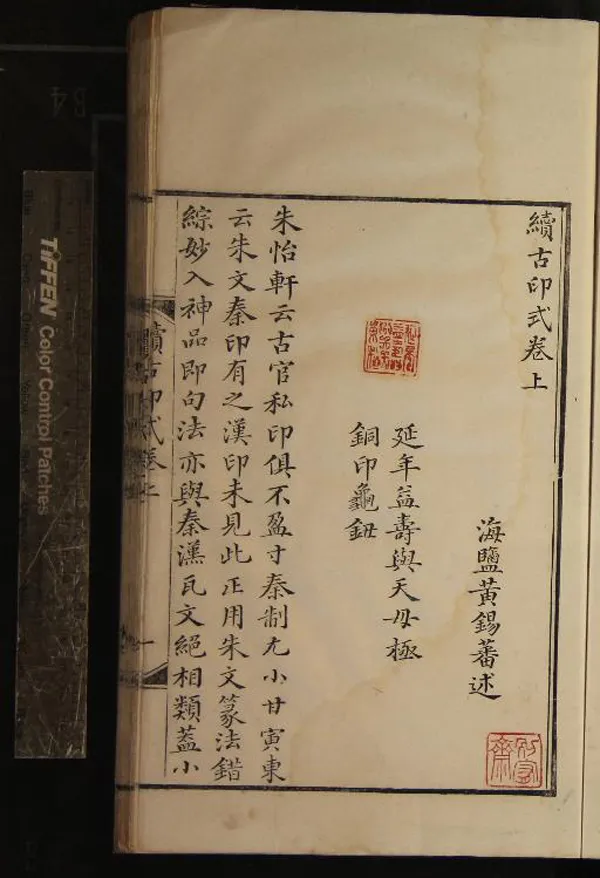 續古印式卷上
海鹽黃錫蕃述
延年益壽與天毋極
銅印龜鈕
朱怡軒云古官私印俱不盈寸秦制尤小甘寅東
云朱文秦印有之漢印未見此正用朱文篆法錯
綜妙入神品即句法亦與秦漢瓦文絕相類蓋小
續古印式卷上
一
TIFFEN Color Control Patches
B4